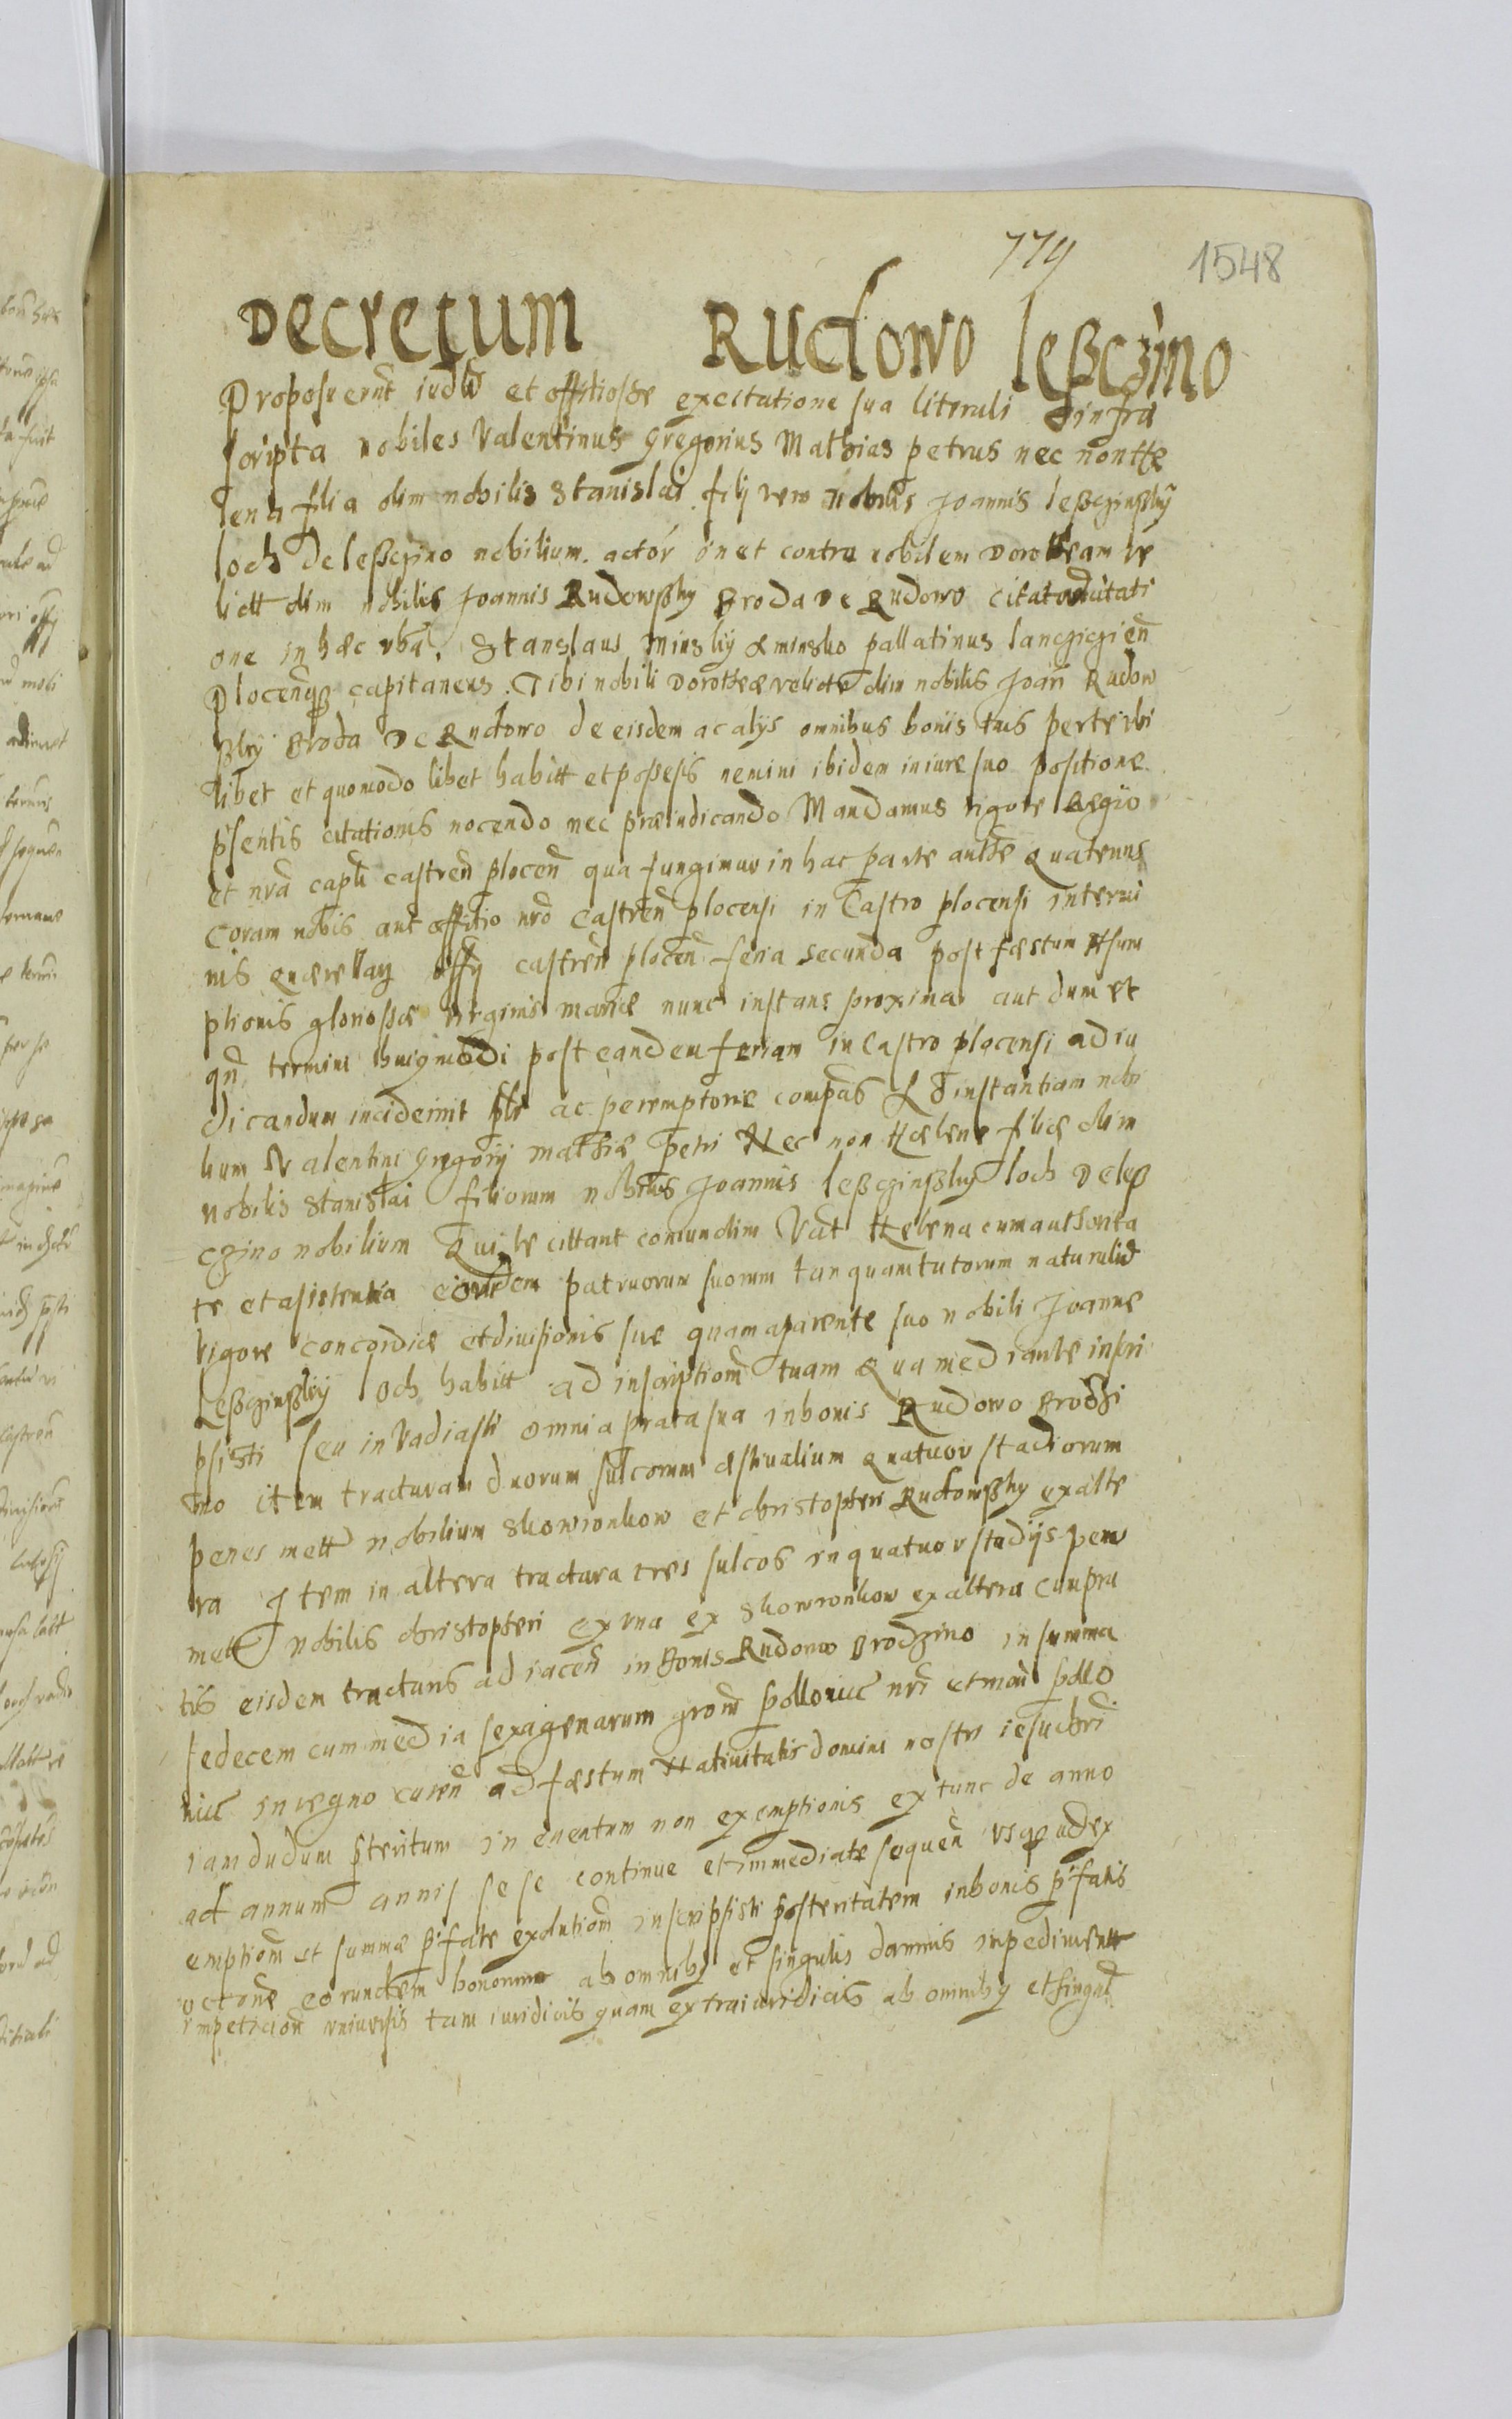 779
1548
Decretum Rudowo leßczino
Proposuerunt et offitiosae ex citatione sua literali infra
scripta nobiles Valentinus Gregorius Mathias petrus nec non He
lena filia olim nobilis Stanislai filij vero nobilis Joannis leßczinßky
loch de leßczino nobilium actor in et contra nobilem Dorotheam re
lictt olim nobilis Joannis Rudowßky Broda de Rudowo citata citati
one in haec vba. Stanslaus Minsky de minsko pallatinus lancziczien
Plocenque capitaneus. Tibi nobili Dorotheae relicte olim nobilis Joan Rudow
ßky Broda de Rudowo de eisdem ac alijs omnibus bonis tuis per te vbi
libet et quomodo libet habitt et possesis nemini ibidem in iure suo positione
psentis citationis nocendo nec praeiudicando Mandamus rigore Regio
et nra capli castren plocen qua fungimur in hac parte autthe Quatenus
Coram nobis aut offitio nro Castren plocensi in Castro plocensi in termi
nis quaerellarum offy castren plocen feria secunda post faestum Assum
ptionis gloriossae virginis mariae nunc instans proxima aut dum et
qn termini huigmodi post eandem feriam in Castro plocensi ad iu
dicandum inciderint plr ac peremptorie compas Ad instantiam nobi
lium Valentini Gregorij mathiae Petri Nec non Haelene filiae olim
nobilis Stanislai filiorum nobilis Joannis leßczinßky loch De leß
czino nobilium Qui te cittant coniunctim Vat Helena cum authorita
te et asistentia eorundem patruorum suorum tanquam tutorum naturaliu
vigore concordiae et diuisionis sue quam a parente suo nobili Joanne
Leßczinßky loch habitt ad inscriptiom tuam Qua mediante inscri
psisti seu inVadiasti omnia prata sua in bonis Rudowo Brodzi
no item tracturam duorum sulcorum aestiualium quatuor stadiorum
penes mett nobilium Skowronkow et christopheri Rudowßky ex alte
ra Item in altera tractura tres sulcos in quatuor stadijs penes
mett nobilis christopheri ex vna ex Skowronkow ex altera cum pra
tis eisdem tracturis adiacen in bonis Rudowo Brodzino in summa
sedecem cum media sexagenarum grom polloniae nri et mon pollo
niae in regno curen ad faestum Natiuitatis domini nostri iesu chri
iam dudum pteritum in euentum non exemptionis ex tunc de anno
ad annum annis sese continue et immediate sequen vsque ad ex
emptiom et summae pfate exolutiom inscripsisti posteritatem in bonis pfatis
eorundem bonorum ab omnibus et singulis damnis inpedimentt
impeticion vniuersis tam iuridicis quam extraiuridicis ab omnibus et singul